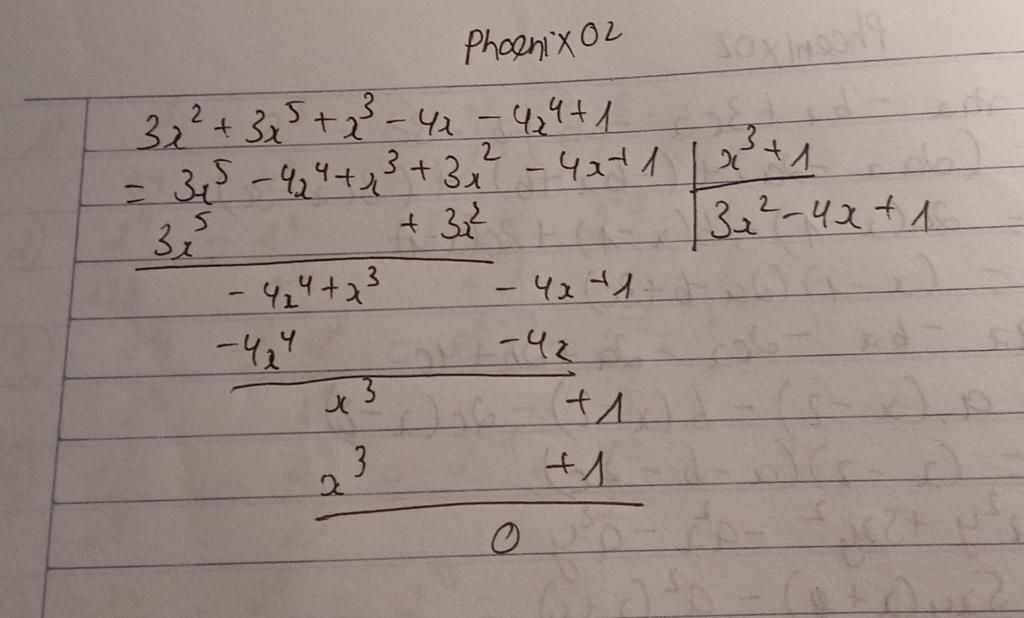 Phoenix02
3x² + 3x⁵ + x³ - 4x - 4x⁴ + 1
= 3x⁵ - 4x⁴ + x³ + 3x² - 4x + 1 | x³ + 1
3x⁵ + 3x² | 3x² - 4x + 1
- 4x⁴ + x³ - 4x + 1
- 4x⁴ - 4x
x³ + 1
x³ + 1
0